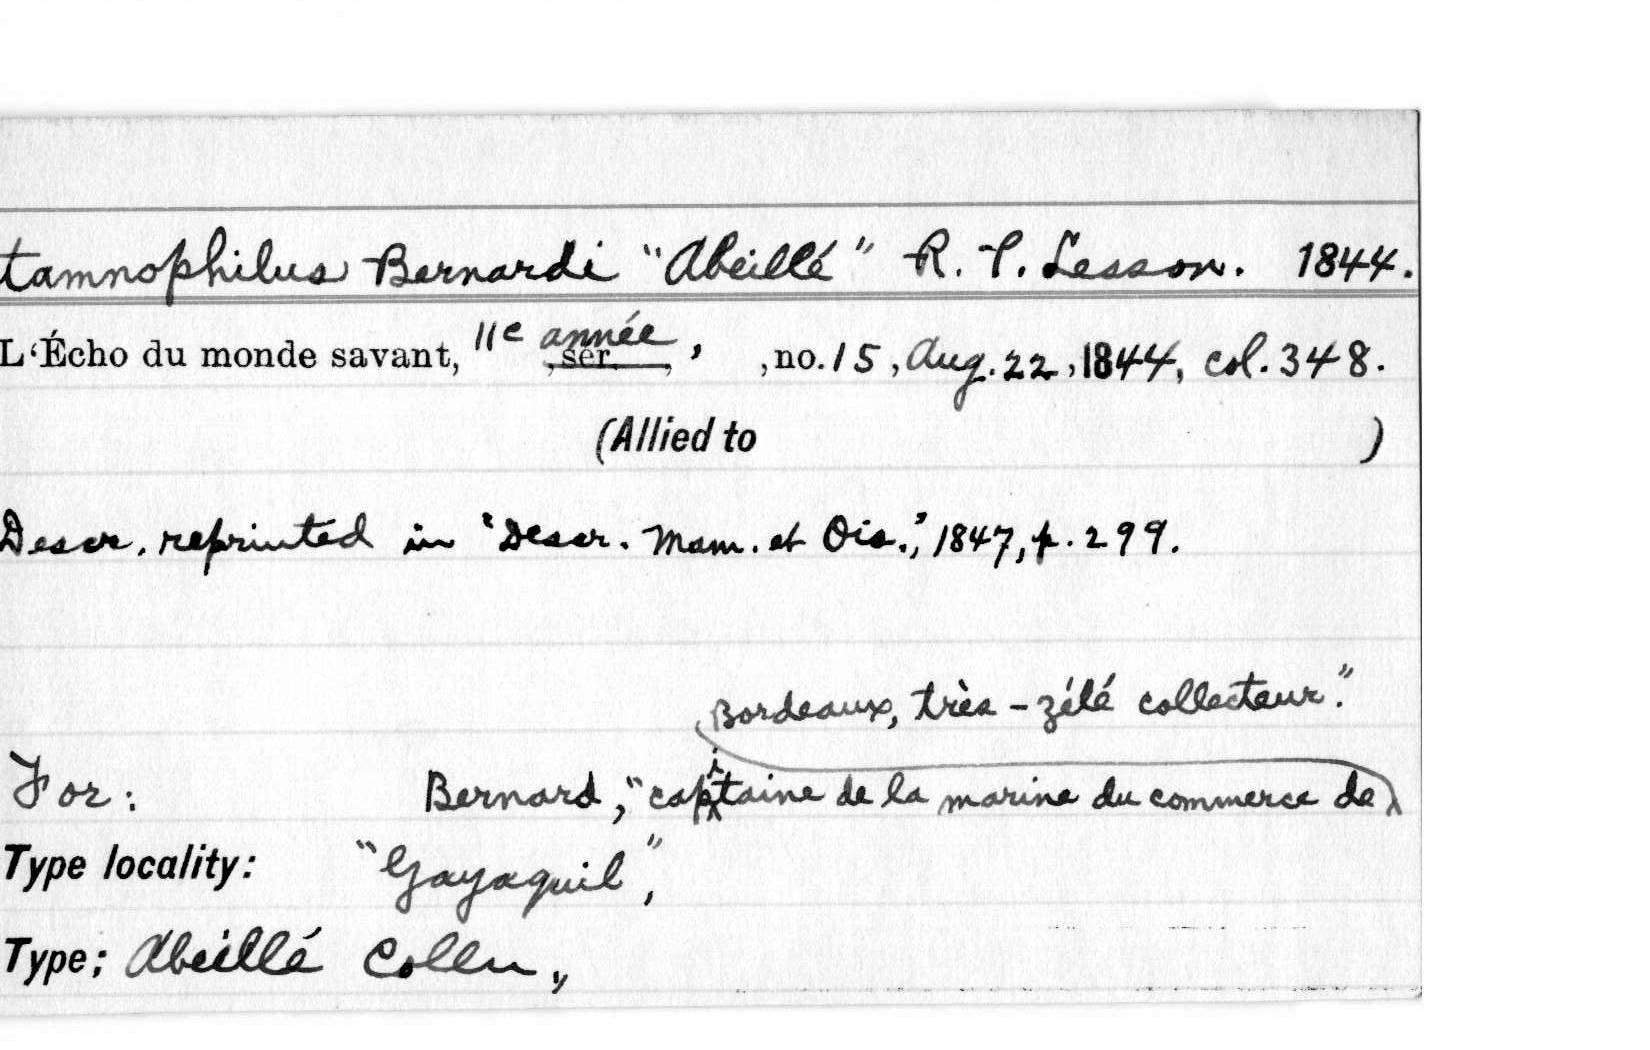 tamnophilus Bernardi "Abeillé" R. P. Lesson. 1844.
L'Écho du monde savant, 11e année, ser. , , no. 15, Aug. 22, 1844, col. 348.
(Allied to )
Descr. reprinted in "Descr. Mam. et Ois.", 1847, p. 299.
Bordeaux, très-zélé collecteur."
For: Bernard, "capitaine de la marine du commerce de
Type locality: "Gayaquil",
Type; Abeillé Colln.,